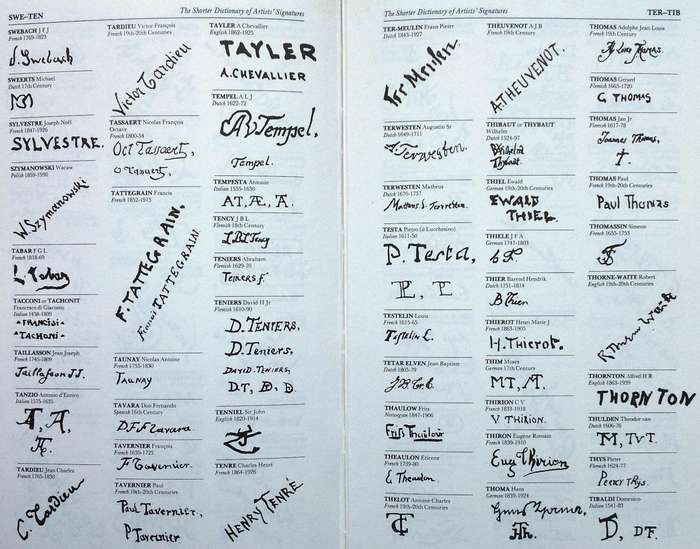 SWE–TEN
The Shorter Dictionary of Artists' Signatures
SWEBACH J F J
French 1769-1823
J. Swebach
SWEERTS Michael
Dutch 17th Century
SYLVESTRE Joseph Noël
French 1847-1926
SYLVESTRE.
SZYMANOWSKI Waraw
Polish 1859-1930
W. Szymanowski
TABAR F G L
French 1818-69
L. Tabar
TACCONI or TACHONIT
Francesco di Giacomo
Italian 1458-1809
TACHONI
TAILLASSON Jean Joseph
French 1745-1809
Taillasson JJ.
TANZIO Antonio d'Enrico
Italian 1575-1635
TARDIEU Jean Charles
French 1765-1830
C. Tardieu
TARDIEU Victor François
French 19th-20th Centuries
Victor Tardieu
TASSAERT Nicolas François
Octave
French 1800-54
Oct Tassaert,
O Tassaert,
TATTEGRAIN Francis
French 1852-1915
F. TATTEGRAIN,
Francis TATTEGRAIN.
TAUNAY Nicolas Antoine
French 1755-1830
TAUNAY
TAVARA Don Fernando
Spanish 16th Century
D.F.F Tavara
TAVERNIER François
French 1659-1725
F. Tavernier.
TAVERNIER Paul
French 19th-20th Centuries
Paul Tavernier,
P Tavernier
TAYLER A Chevallier
English 1862-1925
TAYLER
A. CHEVALLIER
TEMPEL A L J
Dutch 1622-72
Tempel,
Tempel.
TEMPESTA Antonio
Italian 1555-1630
AT, Æ,
TENCY J B L
Flemish 18th Century
J.B.L Tency
TENIERS Abraham
Flemish 1629-70
TENIERS F.
TENIERS David II Jr
Flemish 1610-90
D. TENIERS,
D. Teniers,
DAVID. TENIERS,
D.T,
TENNIEL Sir John
English 1820-1914
TENRE Charles Henri
French 1864-1926
HENRY TENRÉ
The Shorter Dictionary of Artists' Signatures
TER–TIB
TER-MEULEN Frans Pieter
Dutch 1843-1927
Ter Meulen.
TERWESTEN Augustin Sr
Dutch 1649-1711
A. Terwesten.
TERWESTEN Matheus
Dutch 1670-1757
TESTA Pietro (il Lucchesino)
Italian 1611-50
P. Testa,
TESTELIN Louis
French 1615-65
Testelin L.
TETAR ELVEN Jean Baptiste
Dutch 1805-79
THAULOW Frits
Norwegian 1847-1906
Frits Thaulow
THEAULON Etienne
French 1739-80
E Theaulon.
THELOT Antoine-Charles
French 19th-20th Centuries
THEUVENOT A J B
French 19th Century
A THEUVENOT.
THIBAUT or THYBAUT
Wilhelm
Dutch 1524-97
Wilhelm
Thybaut.
THIEL Ewald
German 19th-20th Centuries
EWALD
THIEL.
THIELE J F A
German 1747-1803
THIER Barend Hendrik
Dutch 1751-1814
B Thier
THIEROT Henri Marie J
French 1863-1905
H. Thierot.
THIM Moses
German 17th Century
MT,
THIRION C V
French 1833-1918
V THIRION.
THIRON Eugène Romain
French 1839-1910
Eug Thirion
THOMA Hans
German 1839-1924
THOMAS Adolphe Jean Louis
French 19th-20th Centuries
THOMAS Gerard
Flemish 1663-1720
G THOMAS
THOMAS Jan Jr
Flemish 1617-78
Joannes Thomas,
THOMAS Paul
French 19th-20th Centuries
Paul Thomas
THOMASSIN Simeon
French 1655-1753
THORNE-WAITE Robert
English 19th-20th Centuries
R Thorne Waite
THORNTON Alfred H R
English 1863-1939
THORNTON
THULDEN Theodor van
Dutch 1606-76
TVT.
THYS Pieter
Flemish 1624-77
PEETER THYS.
TIBALDI Domenico
Italian 1541-83
DF.